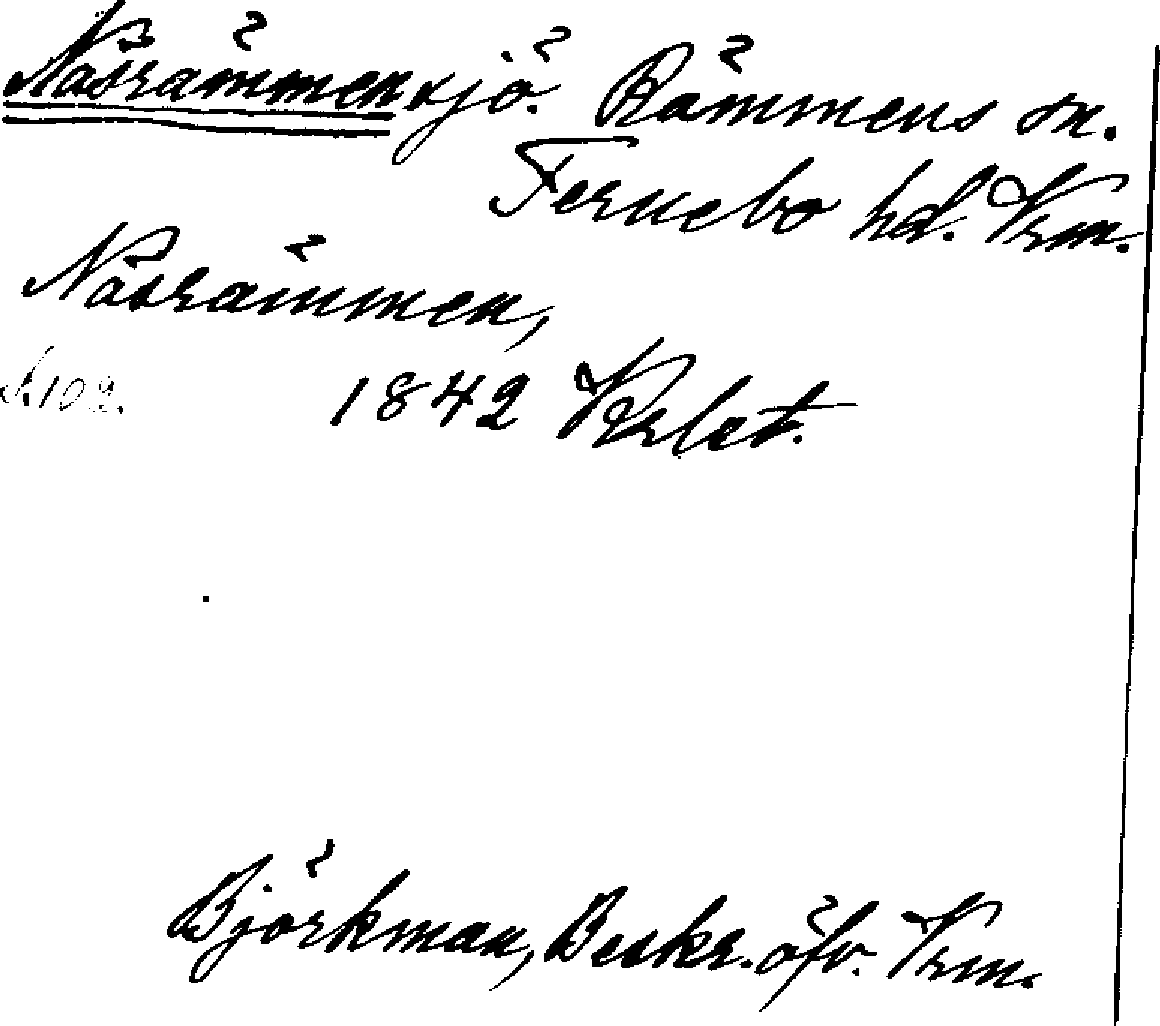 Näsrämmen sjö. Rämmens sn.
Fernebo hd. Vrm.
Näsrämmen,
s. 102. 1842 Krlst.
Björkman, Beskr. öfv. Vrm.